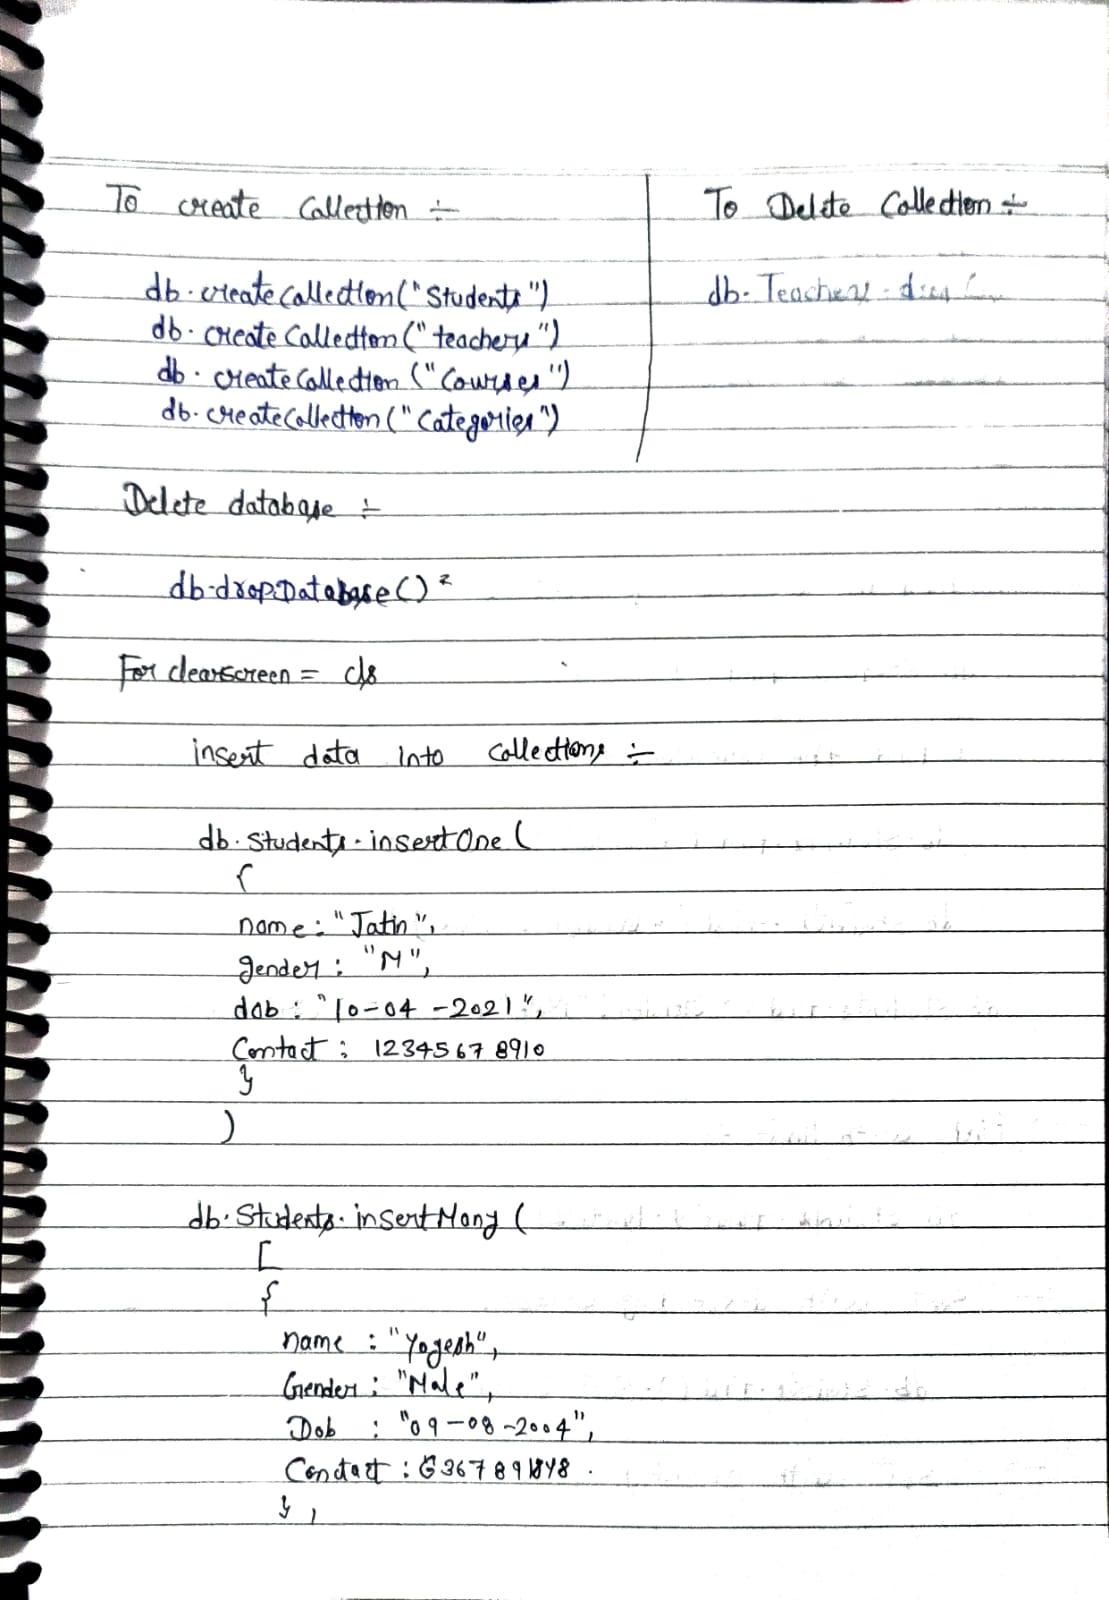 To create Collection ÷
db.createCollection("Students")
db.createCollection("teachers")
db.createCollection("Courses")
db.createCollection("Categories")
To Delete Collection ÷
db.Teachers.
Delete database ÷
db.dropDatabase()
For clearscreen = cls
insert data into Collections ÷
db.Students.insertOne(
{
name: "Jatin",
gender: "M",
dob: "10-04-2021",
Contact: 12345678910
}
)
db.Students.insertMany(
[
{
name : "Yogesh",
Gender: "Male",
Dob : "09-08-2004",
Contact :
},